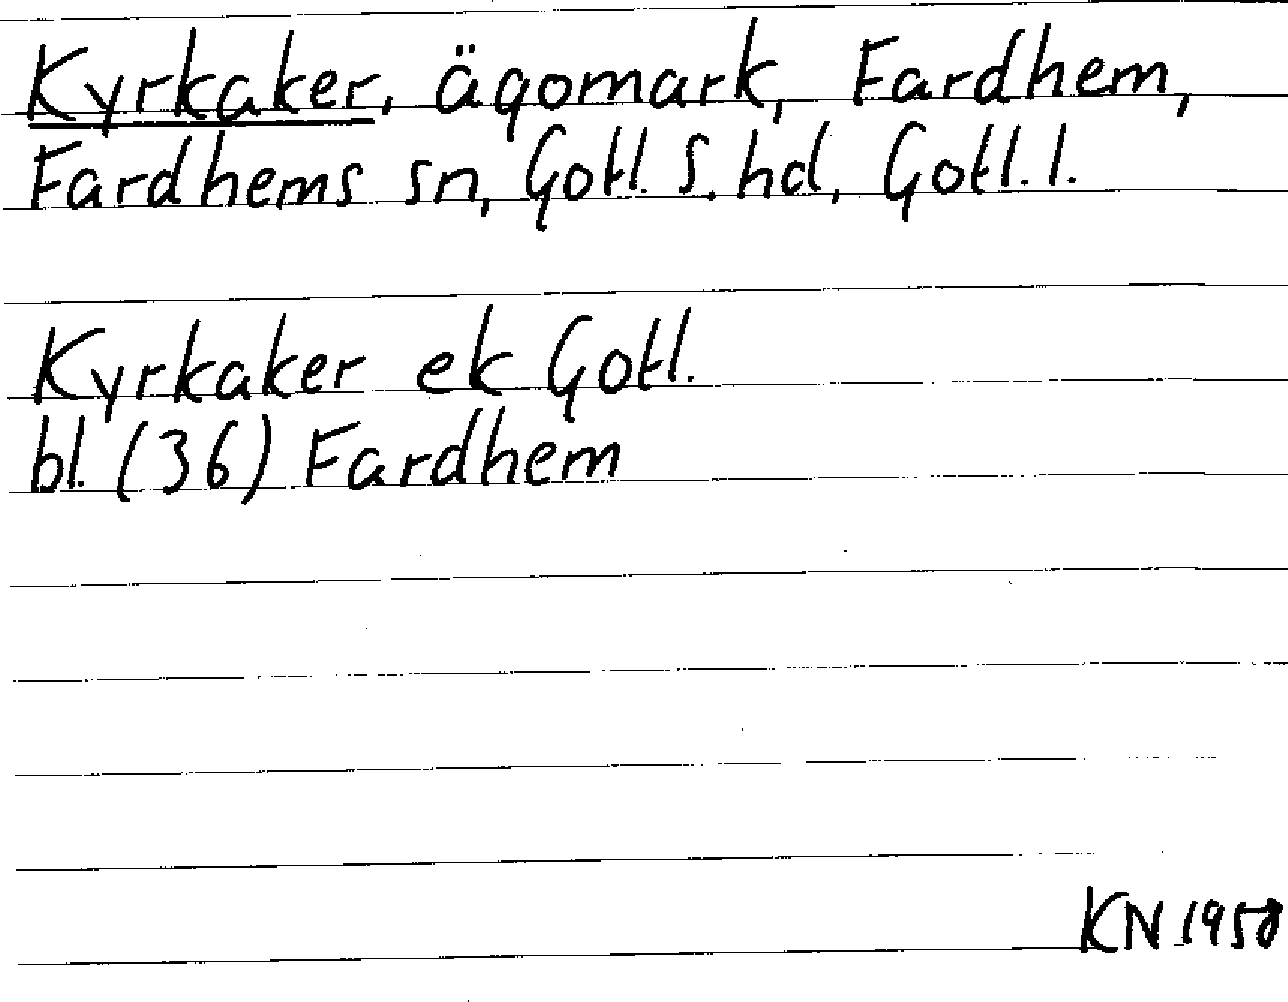 Kyrkaker, ägomark, Fardhem,
Fardhems sn, Gotl. S. hd, Gotl. l.
Kyrkaker ek Gotl.
bl. (36) Fardhem
KN 1950